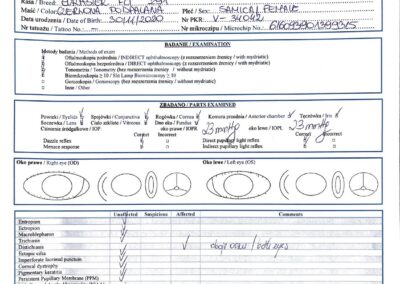 Rasa / Breed: EURASIER FCI 291
Maść / Color: CZERWONA PODPALANA Płeć / Sex: SAMICA / FEMALE
Data urodzenia / Date of Birth: 30/11/2020 Nr PKR: V-34092
Nr tatuażu / Tattoo No.: Nr mikrochipu / Microchip No.:
BADANIE / EXAMINATION
Metody badania / Methods of exam
Oftalmoskopia pośrednia / INDIRECT ophthalmoscopy (z rozszerzeniem źrenicy / with mydriatic)
Oftalmoskopia bezpośrednia / DIRECT ophthalmoscopy (z rozszerzeniem źrenicy / with mydriatic)
Tonometria / Tonometry (bez rozszerzenia źrenicy / without mydriatic)
Biomikroskopia ≥ 10 / Slit Lamp Biomicroscopy ≥ 10
Gonioskopia / Gonioscopy (bez rozszerzenia źrenicy / without mydriatic)
Inne / Other
ZBADANO / PARTS EXAMINED
Powieki / Eyelids Spojówki / Conjunctiva Rogówka / Cornea Komora przednia / Anterior chamber Tęczówka / Iris
Soczewka / Lens Ciało szkliste / Vitreous Dno oka / Fundus
Ciśnienie śródgałkowe / IOP: oko prawe / IOPR 23 mmHg oko lewe / IOPL 23 mmHg
Correct Incorrect Correct Incorrect
Dazzle reflex Direct pupillary light reflex
Menace response Indirect pupillary light reflex
Oko prawe / Right eye (OD) Oko lewe / Left eye (OS)
Unaffected Suspicious Affected Comments
Entropion
Ectropion
Macroblepharon
Trichiasis
Distichiasis oboje oczu / both eyes
Ectopic cilia
Imperforate lacrimal punctum
Corneal dystrophy
Pigmentary keratitis
Persistent Pupillary Membrane (PPM)